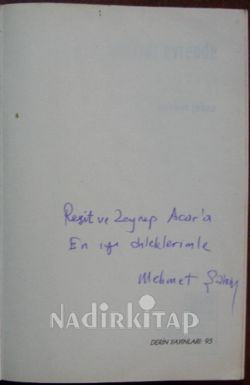 Reşit ve Zeynep Acar'a
En iyi dileklerimle
Mehmet
NADİRKİTAP
DERİN YAYINLARI: 95